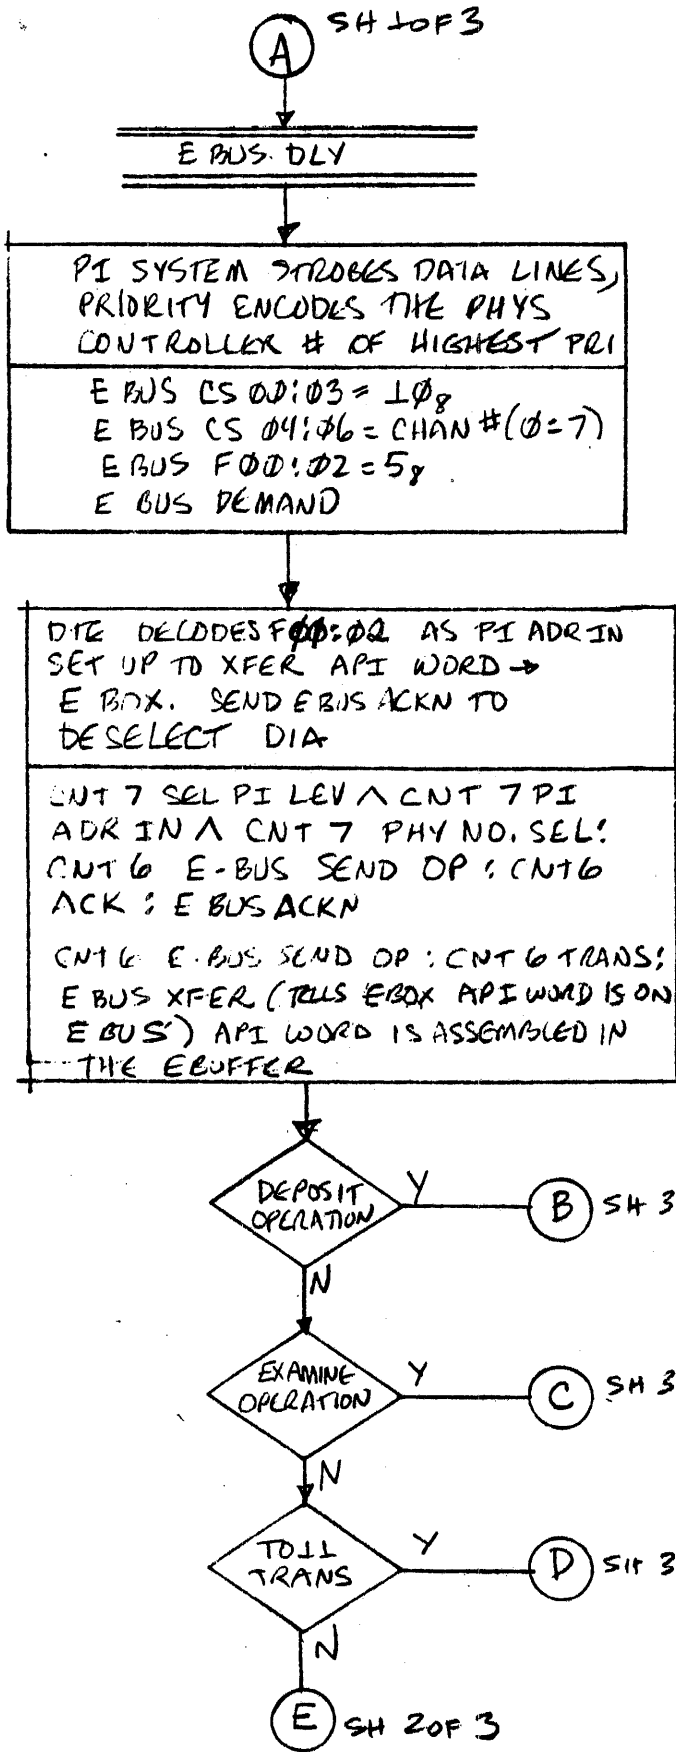 SH 1 OF 3
A
E BUS DLY
PI SYSTEM STROBES DATA LINES,
PRIORITY ENCODES THE PHYS
CONTROLLER # OF HIGHEST PRI
E BUS CS 00:03 = 10₈
E BUS CS 04:06 = CHAN #(0-7)
E BUS F00:02 = 5₈
E BUS DEMAND
DTE DECODES F00:02 AS PI ADR IN
SET UP TO XFER API WORD →
E BOX. SEND EBUS ACKN TO
DESELECT DIA
CNT 7 SEL PI LEV ∧ CNT 7 PI
ADR IN ∧ CNT 7 PHY NO. SEL:
CNT 6 E-BUS SEND OP : CNT6
ACK : E BUS ACKN
CNT 6 E-BUS SEND OP : CNT 6 TRANS:
E BUS XFER (TELLS EBOX API WORD IS ON
E BUS) API WORD IS ASSEMBLED IN
THE EBUFFER
DEPOSIT
OPERATION
Y
B
SH 3
N
EXAMINE
OPERATION
Y
C
SH 3
N
TO11
TRANS
Y
D
SH 3
N
E
SH 2 OF 3